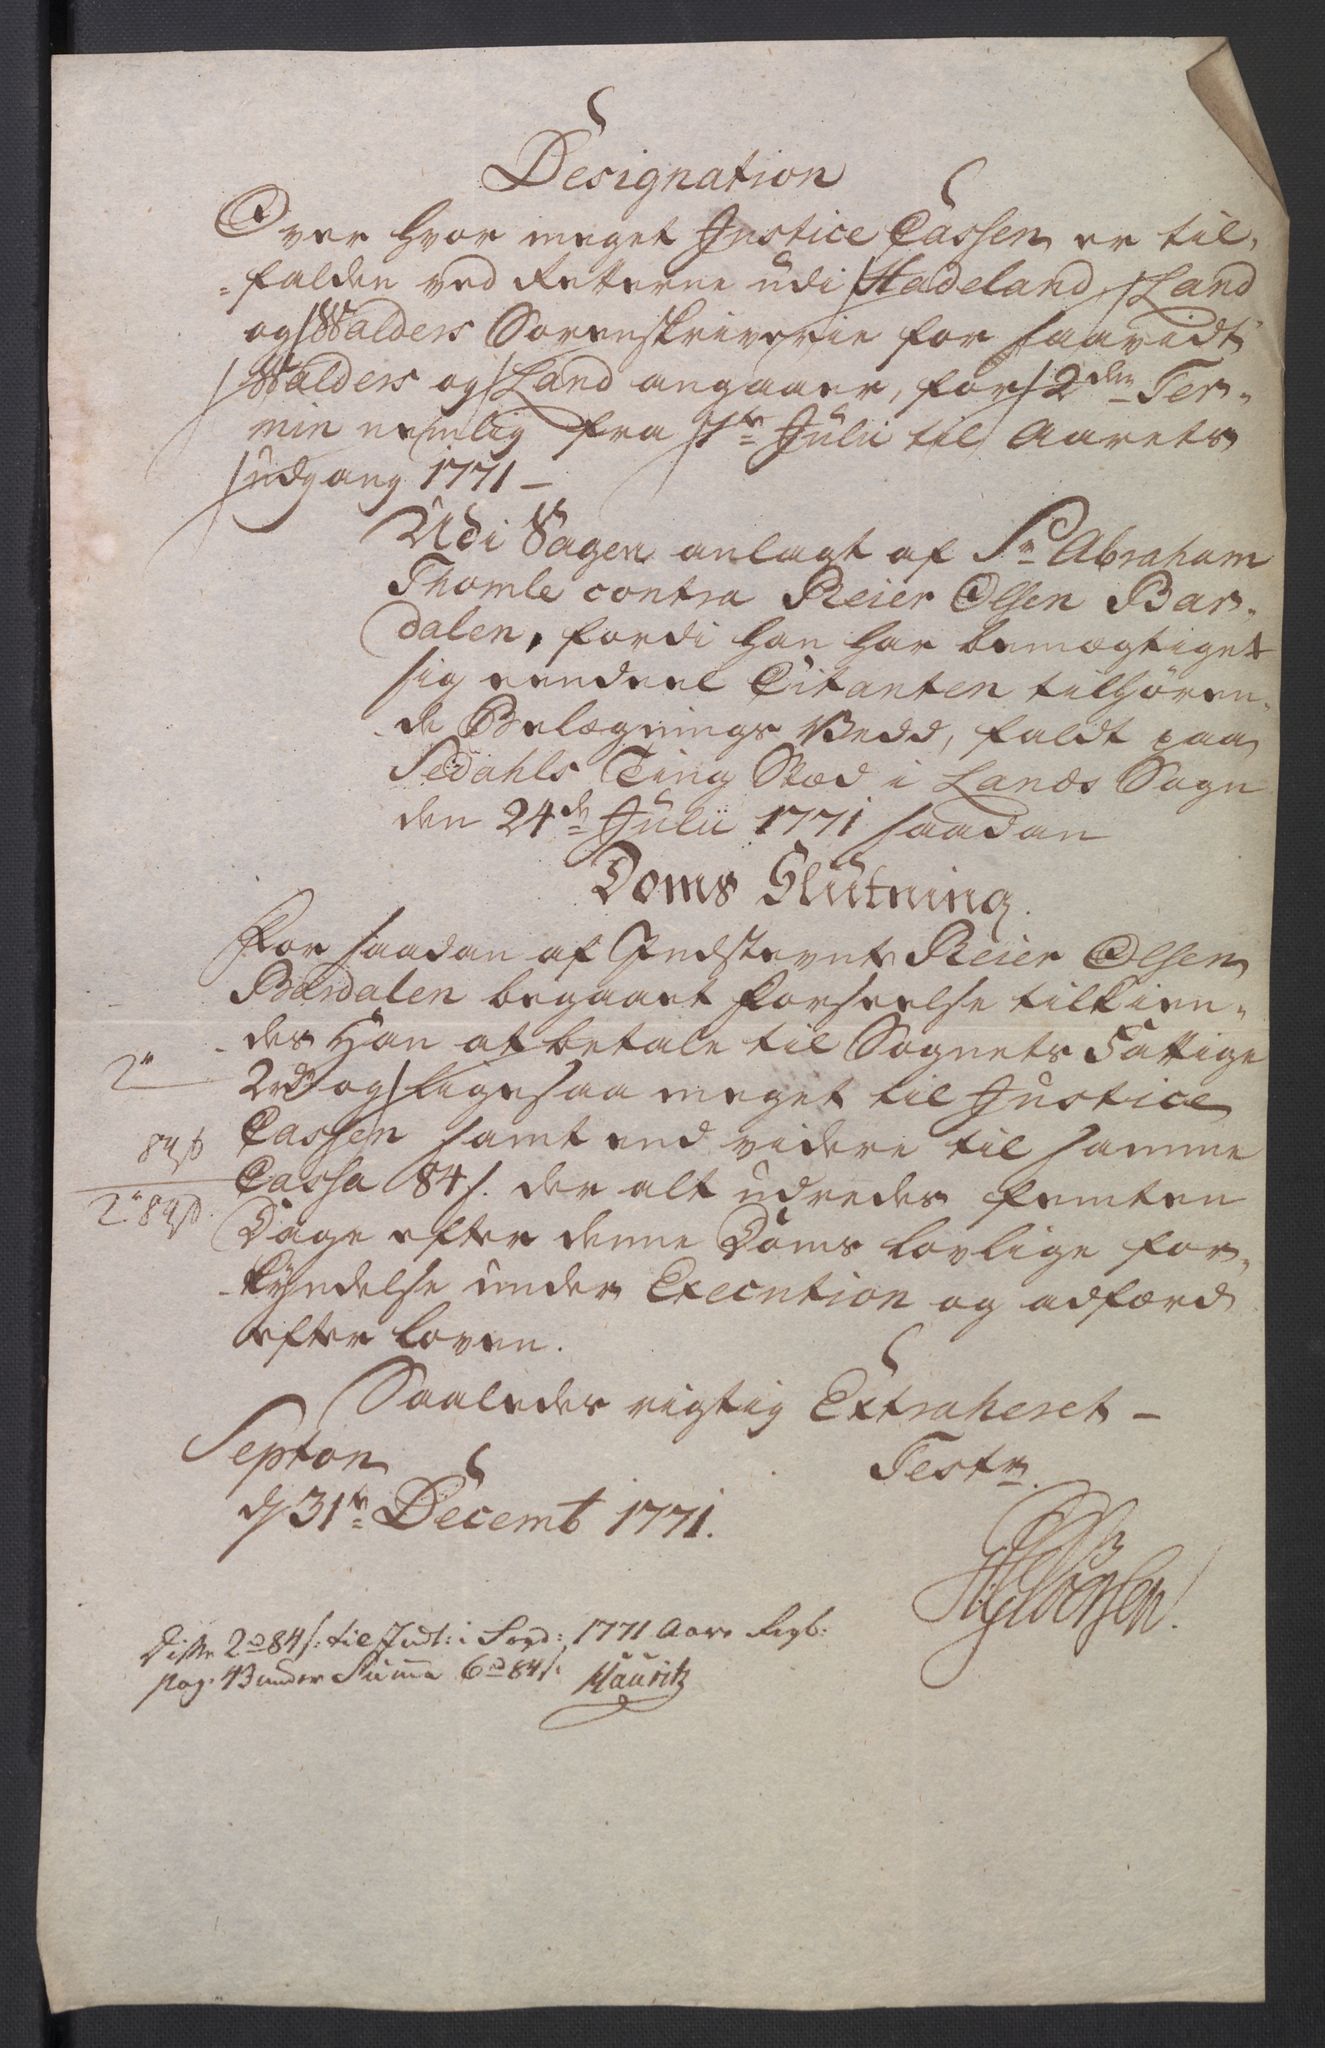 Designation
Over hvor meget Justice Cassen er til-
falden ved Retterne udi Hadeland, Land
og Walders Sorenskriverie for saavidt
Walders og Land angaaer, for 2den Ter-
min nemlig fra 1te Julii til Aarets
udgang 1771 –
Udi Sagen anlagt af Sr Abraham
Thomle contra Reier Olsen Bar-
dalen, fordi han har bemægtiget
sig eendeel Citanten tilhören-
de Belægnings Vedd, faldt paa
Sedahls Ting Stæd i Lands Sogn
den 24de Julii 1771 saadan
Doms Slutning.
For saadan af Indstevnte Reier Olsen
Bardalen begaaet Forseelse tilkien-
des Han at betale til Sognets Fattige
2" 2rd og ligesaa meget til Justice
84s Cassen samt end videre til samme
2"84s. Cassa 84s. der alt udredes femten
Dage efter denne Doms lovlige for-
kyndelse under Execution og adfærd
efter loven.
Saaledes rigtig Extraheret –
Septon Testr.
d 31te Decemb 1771.
Disse 2 d 84 s: til Indt: i 1771 Aars Regb:
pag. 43 under Summa 6 d 84 s. Mauritz